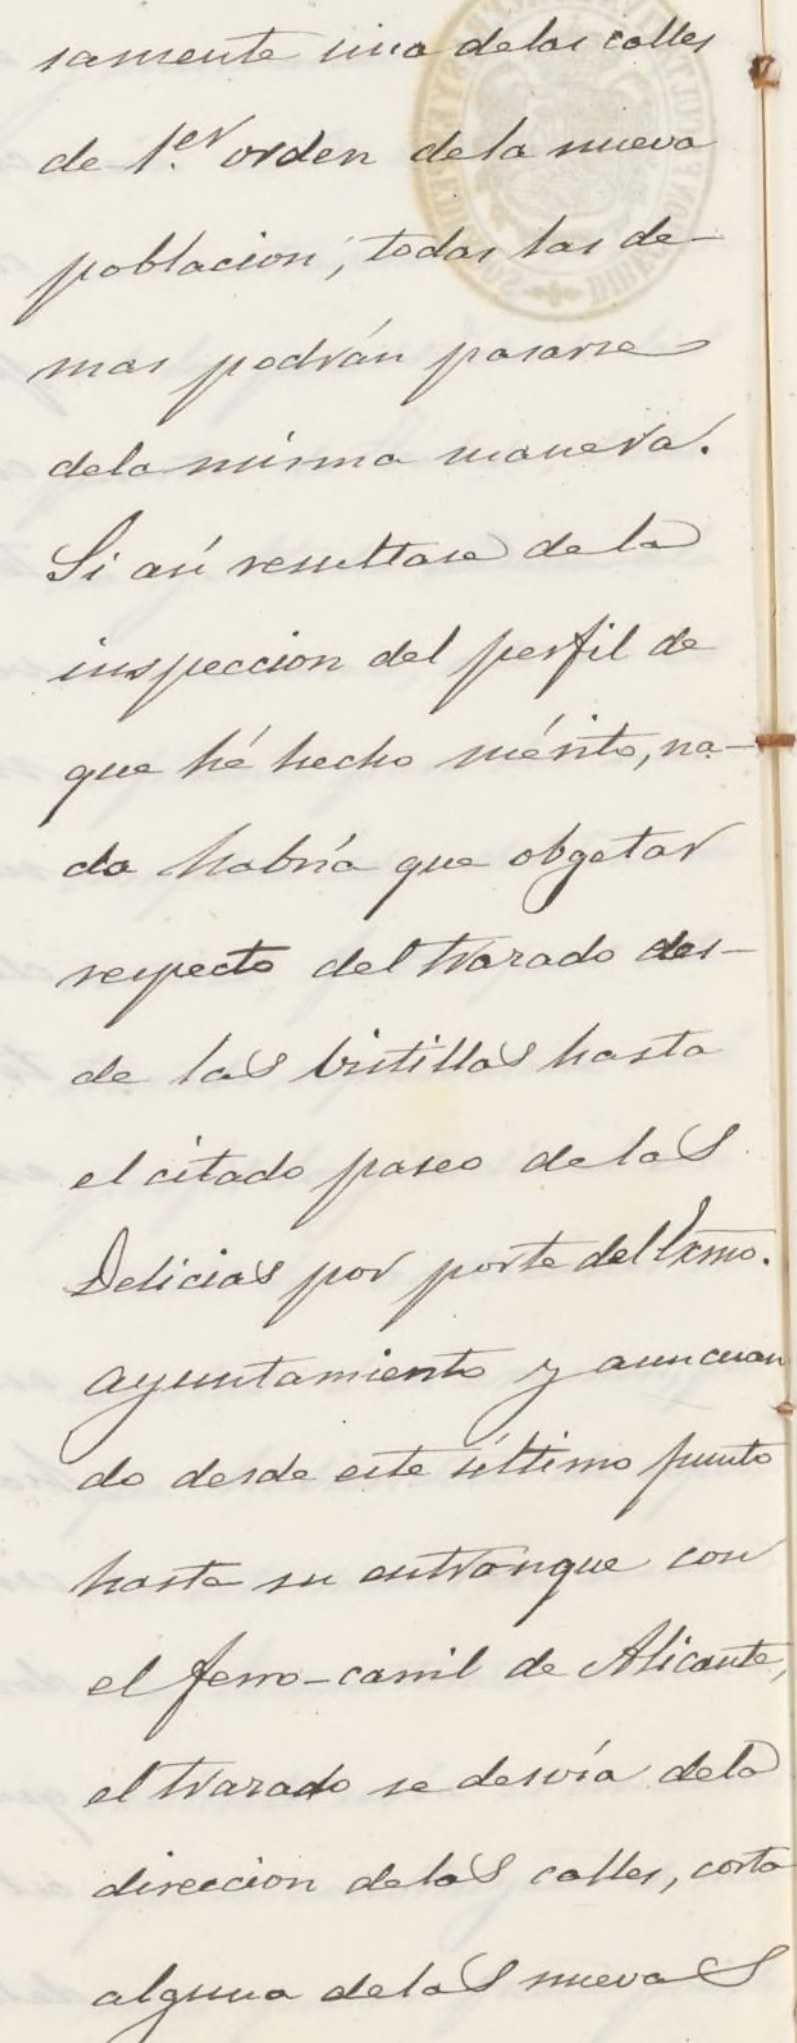 samente una delas calles
de 1.er orden dela nueva
poblacion; todas las de-
mas podrán pasarse
dela misma manera.
Si asi resultase de la
inspeccion del perfil de
que hé hecho mérito, na-
da habría que obgetar
respecto del trazado des-
de las Vistillas hasta
el citado paseo de las
Delicias por parte del Exmo.
Ayuntamiento y aun cuan
do desde este último punto
hasta su entronque con
el ferro-carril de Alicante,
el trazado se desvía dela
direccion delas calles, corta
alguna delas nuevas